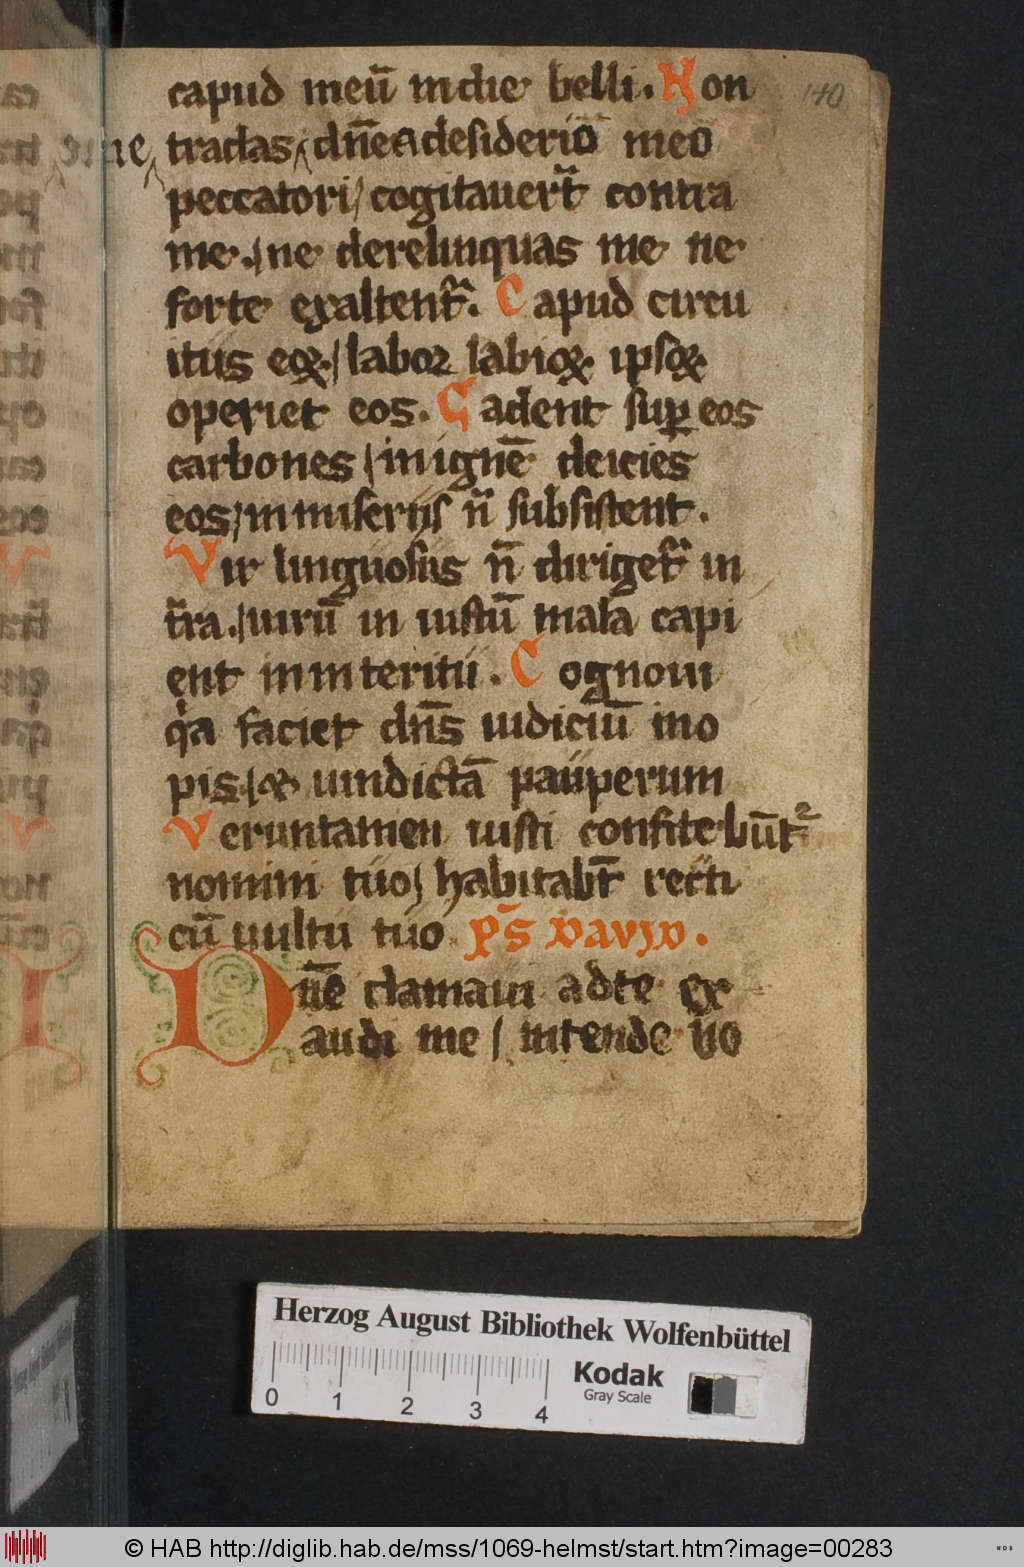 capud meū in die belli. Non
140
tradas dn̄e a desiderio meo
peccatori / cogitauert̄ contra
me. / ne derelinquas me ne
forte exaltent᷑. Capud circu
itus eoꝝ. / labor labioꝝ ipsoꝝ
operiet eos. Cadent suꝑ eos
carbones / in ignē deicies
eos / in miseriis n̄ subsistent.
Vir linguosus n̄ diriget᷑ in
t̄ra. / uirū in iustū mala capi
ent in interitu. Cognoui
q̓a faciet dn̄s iudiciū ino
pis. / & uindictā pauperum
Veruntamen iusti confitebūt᷑
nomini tuo / habitabt̄ recti
cū uultu tuo. ps̄ DAVID.
Dn̄e clamaui ad te ex
audi me / intende uo
Herzog August Bibliothek Wolfenbüttel
0 1 2 3 4
Kodak
Gray Scale
© HAB http://diglib.hab.de/mss/1069-helmst/start.htm?image=00283